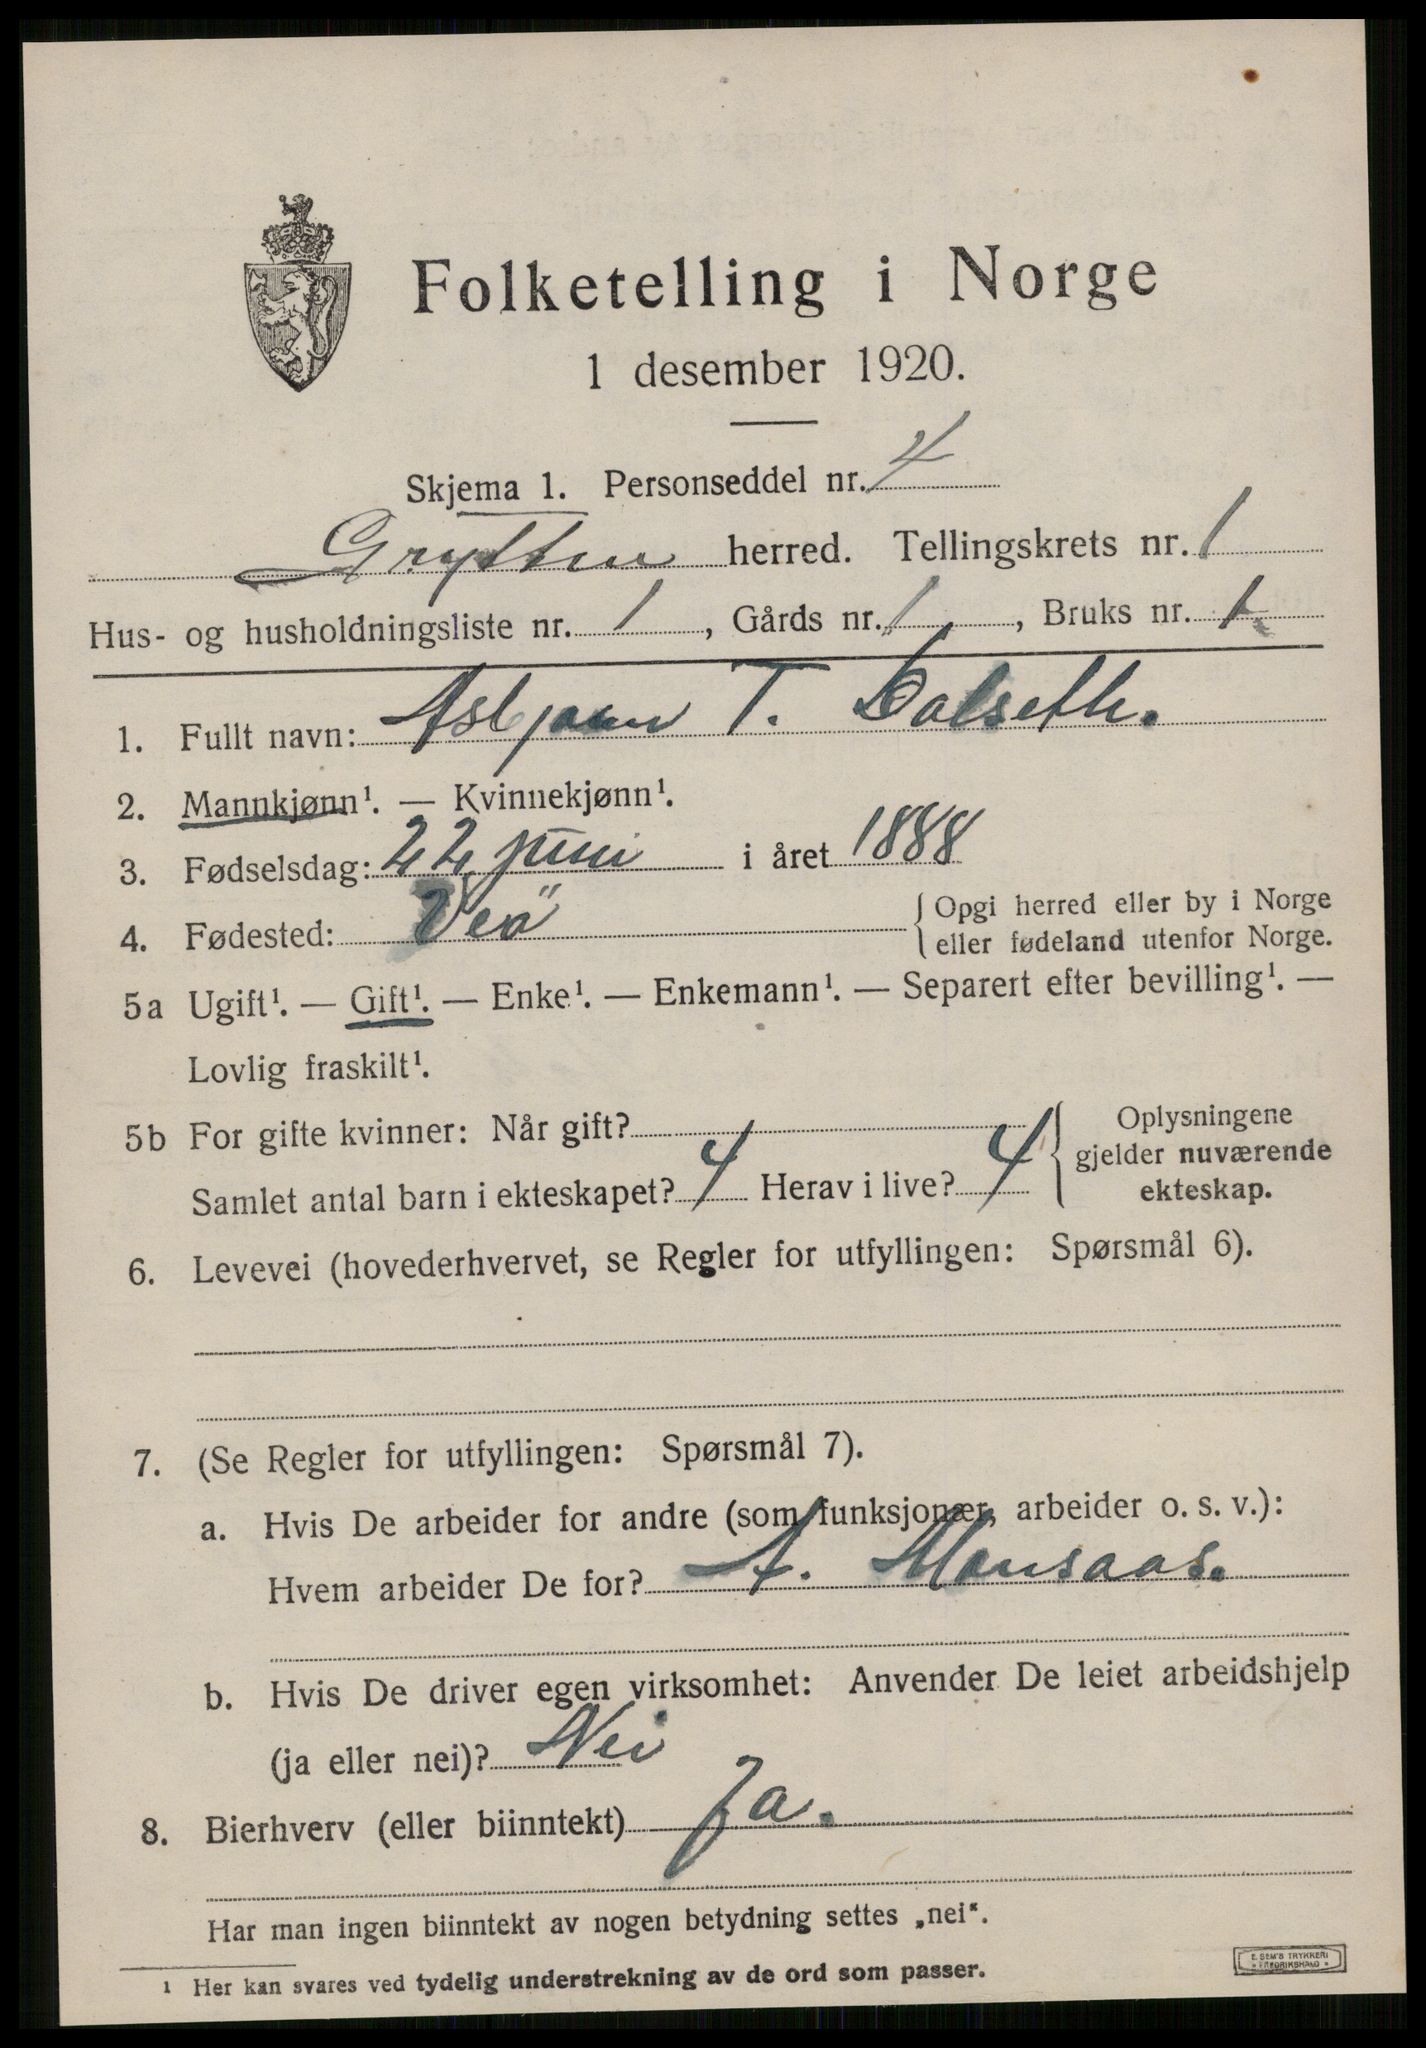 Folketelling i Norge
1 desember 1920.
Skjema 1. Personseddel nr. 4
Grytten herred. Tellingskrets nr. 1
Hus- og husholdningsliste nr. 1, Gårds nr. 1, Bruks nr. 1.
1. Fullt navn: Asbjørn T. Dalseth.
2. Mannkjønn¹. — Kvinnekjønn¹.
3. Fødselsdag: 22 juni i året 1888
4. Fødested: Veö { Opgi herred eller by i Norge
eller fødeland utenfor Norge.
5a Ugift¹. — Gift¹. — Enke¹. — Enkemann¹. — Separert efter bevilling¹. —
Lovlig fraskilt¹.
5b For gifte kvinner: Når gift?
Samlet antal barn i ekteskapet? 4 Herav i live? 4
Oplysningene
gjelder nuværende
ekteskap.
6. Levevei (hovederhvervet, se Regler for utfyllingen: Spørsmål 6).
7. (Se Regler for utfyllingen: Spørsmål 7).
a. Hvis De arbeider for andre (som funksjonær, arbeider o. s. v.):
Hvem arbeider De for? A. Monsaas.
b. Hvis De driver egen virksomhet: Anvender De leiet arbeidshjelp
(ja eller nei)? Nei
8. Bierhverv (eller biinntekt) Ja.
Har man ingen biinntekt av nogen betydning settes „nei“.
¹ Her kan svares ved tydelig understrekning av de ord som passer.
E. SEM'S TRYKKERI
* FREDRIKSHALD *